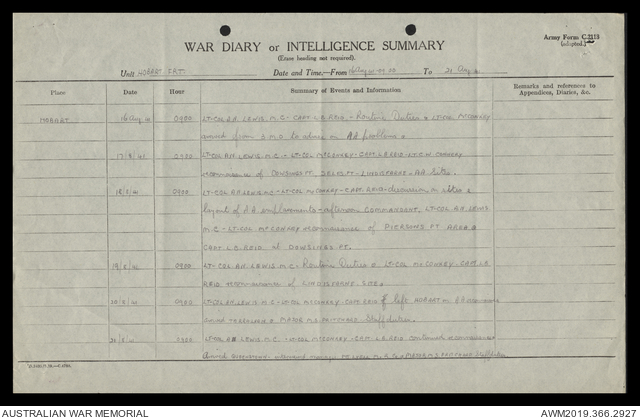 Army Form C.2118
(adapted.)
WAR DIARY or INTELLIGENCE SUMMARY
(Erase heading not required).
Unit HOBART. FRT. Date and Time.—From 16 Aug 41 To 21 Aug 41.
Place Date Hour Summary of Events and Information Remarks and references to
Appendices, Diaries, &c.
HOBART. 16 Aug 41 0900 LT-COL A.H. LEWIS M.C - CAPT. L.B. REID - Routine Duties & LT-COL McCONKEY
arrived from S.M.D to advise on AA problems.
17/8/41 0900 LT-COL A.H. LEWIS M.C - LT-COL McCONKEY - CAPT. L.B. REID - LT.
reconnaissance of DOWSINGS PT. LINDISFARNE - AA Sites.
18/8/41 0900 LT-COL A.H. LEWIS MC - LT-COL McCONKEY - CAPT. REID - discussion on sites &
layout of AA emplacements - afternoon COMMANDANT, LT-COL A.H. LEWIS
M.C - LT-COL McCONKEY reconnaissance of PIERSONS PT AREA &
CAPT L.B. REID at DOWSINGS PT.
19/8/41 0900 LT-COL A.H. LEWIS M.C - Routine Duties & LT-COL McCONKEY - CAPT. L.B.
REID reconnaissance of LINDISFARNE SITE.
20/8/41 0900 LT-COL A.H. LEWIS M.C - LT-COL McCONKEY - CAPT. REID left HOBART on AA reconnaissance
MAJOR M.S. PRITCHARD Staff duties.
21/8/41 0900 LT-COL A.H LEWIS M.C. - LT-COL McCONKEY - CAPT L.B. REID continued reconnaissance
MAJOR M.S. PRITCHARD Staff duties
AUSTRALIAN WAR MEMORIAL
AWM2019.366.2927